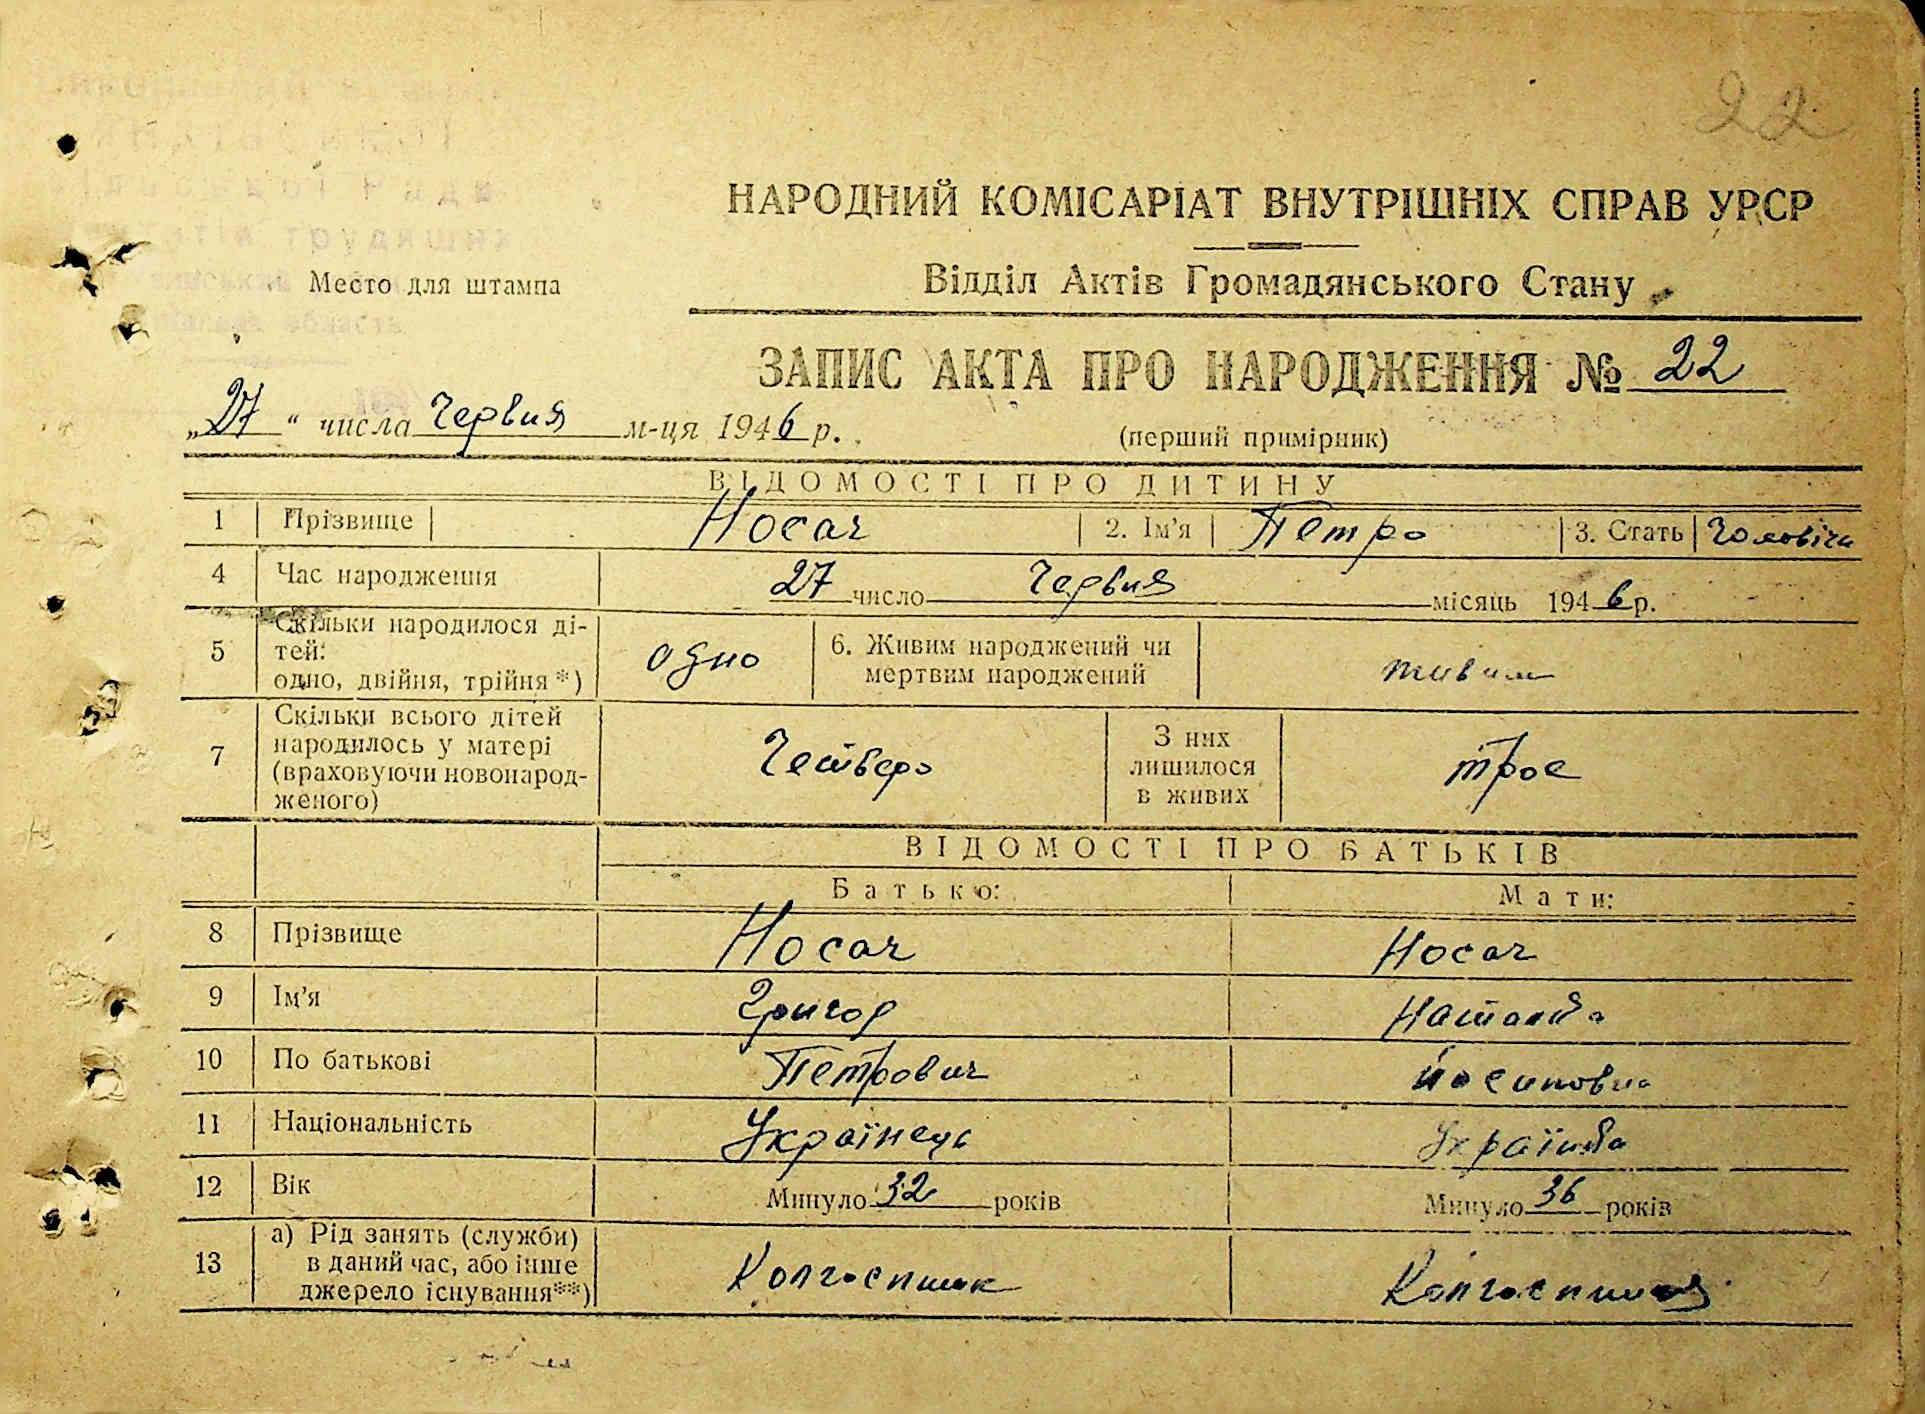 22
НАРОДНИЙ КОМІСАРІАТ ВНУТРІШНІХ СПРАВ УРСР
Место для штампа
Відділ Актів Громадянського Стану
ЗАПИС АКТА ПРО НАРОДЖЕННЯ № 22
„27“ числа Червня м-ця 1946 р.
(перший примірник)
ВІДОМОСТІ ПРО ДИТИНУ
1 Прізвище Носач 2. Ім'я Петро 3. Стать Чоловіча
4 Час народження 27 число Червня місяць 1946 р.
5 Скільки народилося ді-
тей:
одно, двійня, трійня *) одно 6. Живим народжений чи
мертвим народжений живим
7 Скільки всього дітей
народилось у матері
(враховуючи новонарод-
женого) Четверо З них
лишилося
в живих трое
ВІДОМОСТІ ПРО БАТЬКІВ
Батько: Мати:
8 Прізвище Носач Носач
9 Ім'я Григор Наталія
10 По батькові Петрович Йосиповна
11 Національність Українець Українка
12 Вік Минуло 32 років Минуло 36 років
13 а) Рід занять (служби)
в даний час, або інше
джерело існування**) Колгоспник Колгоспниця